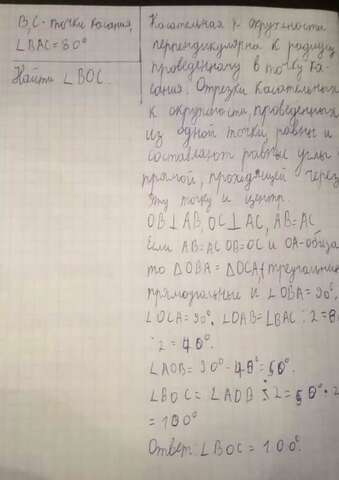 B,C - точки касания,
∠BAC = 80°
Найти ∠BOC.
Касательная к окружности
перпендикулярна к радиусу
проведенному в точку ка-
сания. Отрезки касательных
к окружности, проведенных
из одной точки равны и
составляют равные углы
прямой, проходящей через
эту точку и центр.
OB⊥AB, OC⊥AC, AB=AC
Если AB=AC OB=OC и OA-общая
то ΔOBA = ΔOCA (треугольники
прямоугольные и ∠OBA=90°,
∠OCA=90°. ∠OAB=∠BAC:2=8
:2=40°.
∠AOB=90°-40°=50°.
∠BOC=∠AOB · 2=50° · 2
=100°
Ответ: ∠BOC=100°.